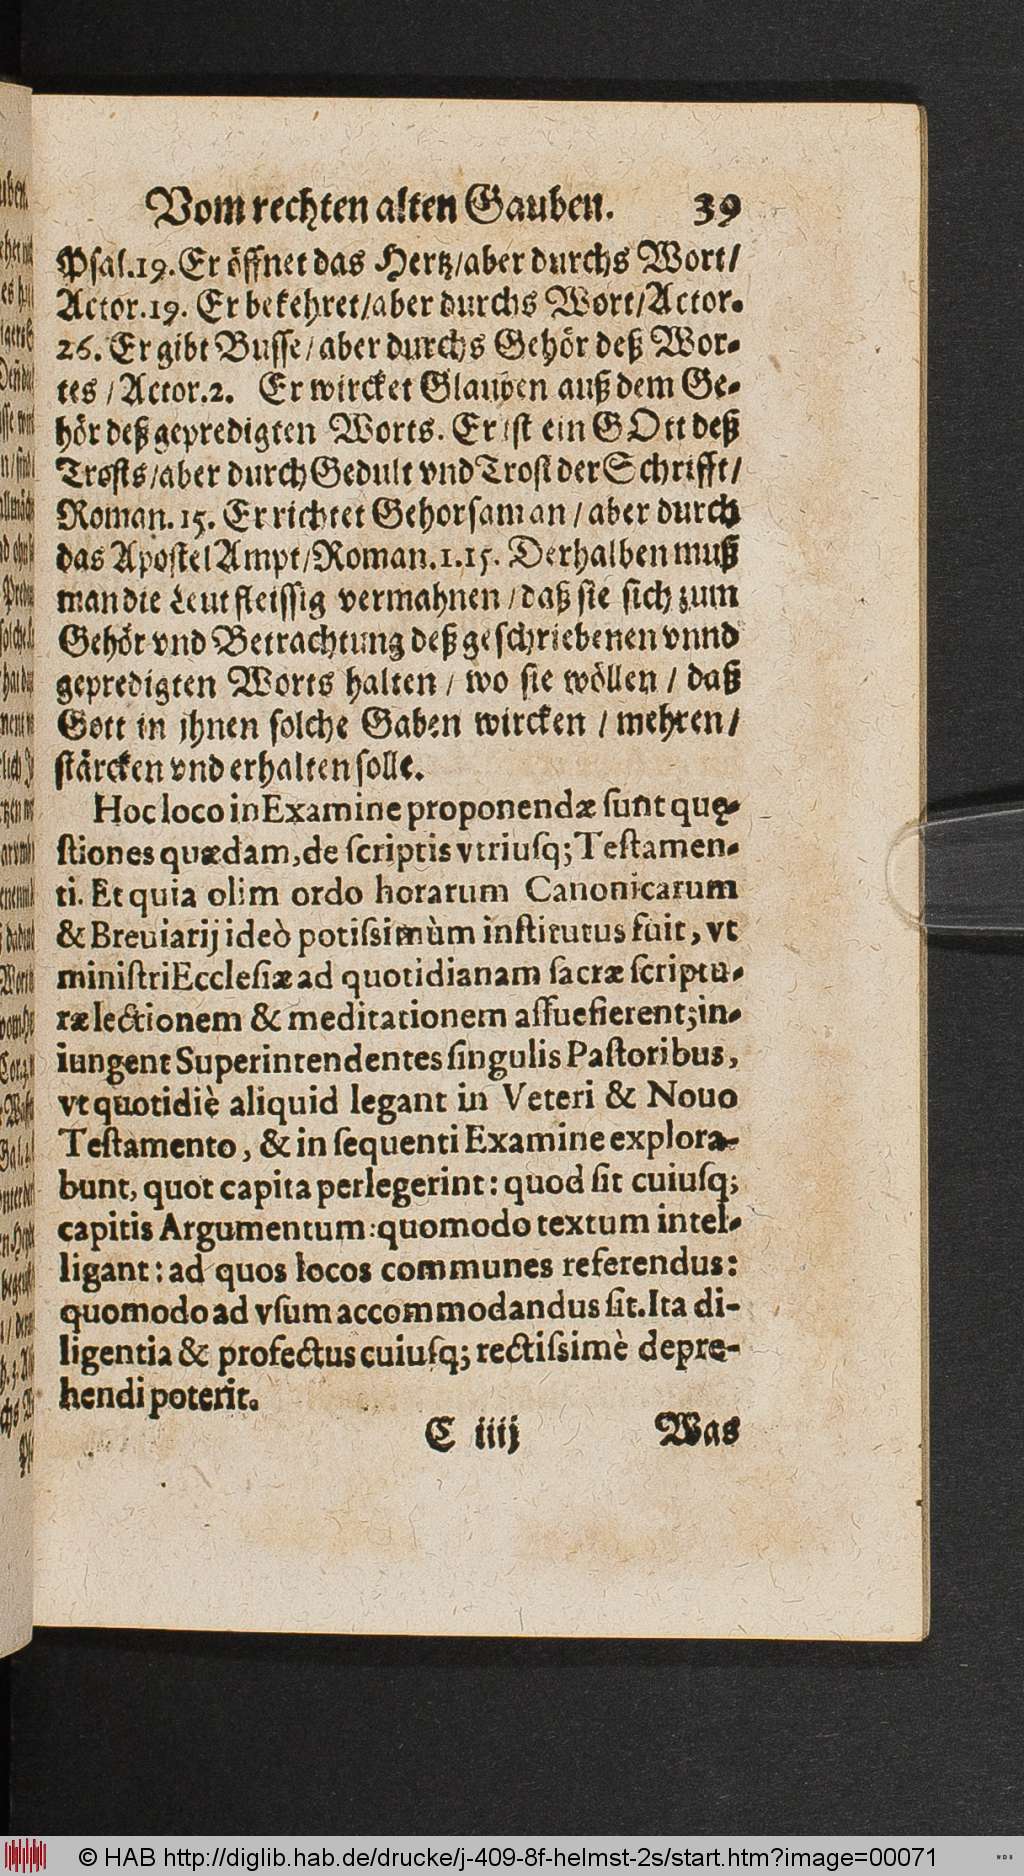 Vom rechten alten Gauben. 39
Psal.19. Er öffnet das Hertz/aber durchs Wort/
Actor.19. Er bekehret/aber durchs Wort/Actor.
26. Er gibt Busse/aber durchs Gehör deß Wor-
tes/Actor.2. Er wircket Glauben auß dem Ge-
hör deß gepredigten Worts. Er ist ein GOtt deß
Trosts/aber durch Gedult vnd Trost der Schrifft/
Roman. 15. Er richtet Gehorsam an/aber durch
das Apostel Ampt/Roman.1.15. Derhalben muß
man die Leut fleissig vermahnen/daß sie sich zum
Gehör vnd Betrachtung deß geschriebenen vnnd
gepredigten Worts halten/wo sie wöllen/daß
Gott in jhnen solche Gaben wircken/mehren/
stärcken vnd erhalten solle.
Hoc loco in Examine proponendæ ſunt quę-
ſtiones quædam, de ſcriptis vtriuſq; Teſtamen-
ti. Et quia olim ordo horarum Canonicarum
& Breuiarij ideò potiſsimùm inſtitutus fuit, vt
miniſtri Eccleſiæ ad quotidianam ſacræ ſcriptu-
ræ lectionem & meditationem aſſuefierent; in-
iungent Superintendentes ſingulis Paſtoribus,
vt quotidiè aliquid legant in Veteri & Nouo
Teſtamento, & in ſequenti Examine explora-
bunt, quot capita perlegerint: quod ſit cuiuſq;
capitis Argumentum: quomodo textum intel-
ligant: ad quos locos communes referendus:
quomodo ad vſum accommodandus ſit. Ita di-
ligentia & profectus cuiuſq; rectiſsimè depre-
hendi poterit.
C iiij Was
© HAB http://diglib.hab.de/drucke/j-409-8f-helmst-2s/start.htm?image=00071